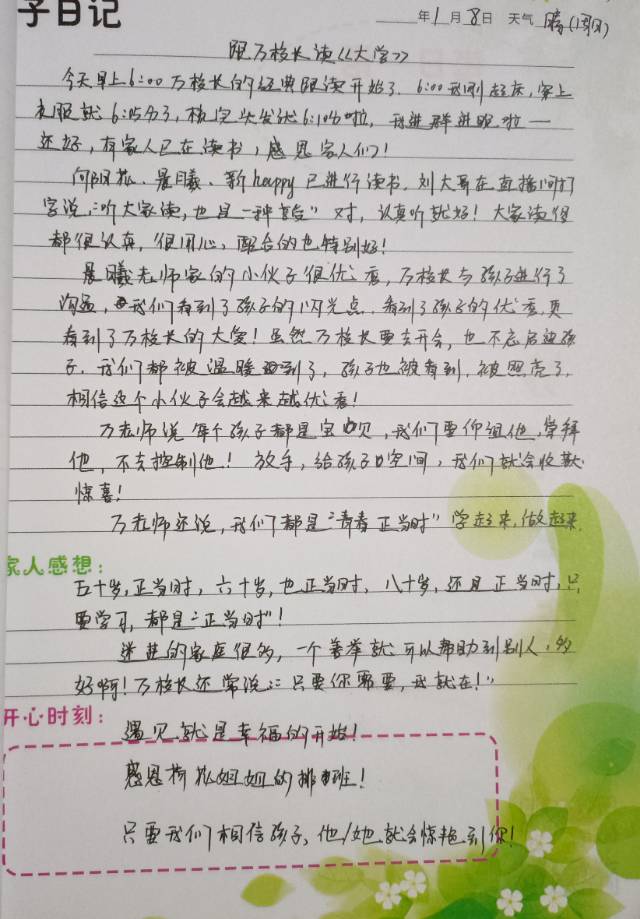 子日记
年1月8日 天气 晴(阴)
跟万校长读《大学》
今天早上6:00万校长的经典跟读开始了. 6:00我刚起床,穿上
衣服就6:05分了,梳完头发就6:10的啦,我进群进晚啦一
还好,有家人已在读书,感恩家人们!
向阳花、晨曦、新happy已进行读书.刘大哥在直播间打
字说:“听大家读,也是一种享受”对,认真听就好!大家读得
都很认真,很用心,配合的也特别好!
晨曦老师家的小伙子很优秀,万校长与孩子进行了
沟通,我们看到了孩子的闪光点.看到了孩子的优秀,更
看到了万校长的大爱!虽然万校长要去开会,也不忘启迪孩
子,我们都被温暖到了,孩子也被看到,被照亮了,
相信这个小伙子会越来越优秀!
万老师说每个孩子都是宝贝,我们要仰望他,崇拜
他,不去控制他!放手,给孩子空间,我们就会收获
惊喜!
万老师还说,我们都是“青春正当时”学起来,做起来.
家人感想:
五十岁,正当时,六十岁,也正当时,八十岁,还是正当时,只
要学习,都是“正当时”!
迷茫的家庭很多,一个善举就可以帮助到别人,多
好啊!万校长还常说:“只要你需要,我就在!”
开心时刻:
遇见就是幸福的开始!
感恩荷花姐姐的排班!
只要我们相信孩子,他/她就会惊艳到你!